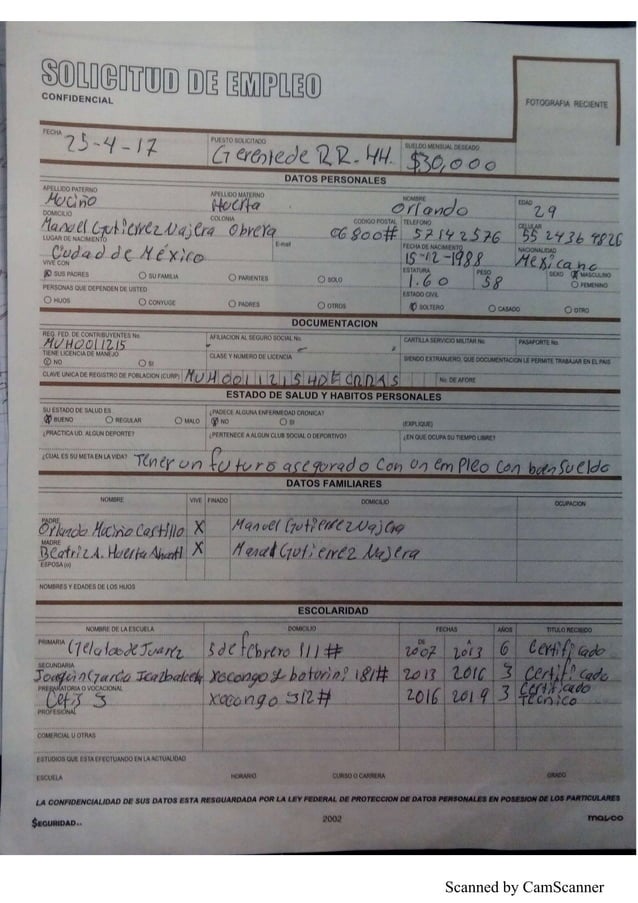 SOLICITUD DE EMPLEO
CONFIDENCIAL
FOTOGRAFIA RECIENTE
FECHA 25-4-17
PUESTO SOLICITADO Gerente de RR.HH.
SUELDO MENSUAL DESEADO $30,000
DATOS PERSONALES
APELLIDO PATERNO APELLIDO MATERNO NOMBRE EDAD
Muciño Huerta Orlando 29
DOMICILIO COLONIA CODIGO POSTAL TELEFONO CELULAR
Manuel Gutierrez Najera Obrera 06800# 57142576 55 24364826
LUGAR DE NACIMIENTO E-mail FECHA DE NACIMIENTO NACIONALIDAD
Ciudad de México 15-12-1988 Mexicano
VIVE CON ESTATURA PESO SEXO MASCULINO
SUS PADRES SU FAMILIA PARIENTES SOLO 1.60 58 FEMENINO
PERSONAS QUE DEPENDEN DE USTED ESTADO CIVIL
HIJOS CONYUGE PADRES OTROS SOLTERO CASADO OTRO
DOCUMENTACION
REG. FED. DE CONTRIBUYENTES No. AFILIACION AL SEGURO SOCIAL No. CARTILLA SERVICIO MILITAR No. PASAPORTE No.
MUH0011215
TIENE LICENCIA DE MANEJO CLASE Y NUMERO DE LICENCIA SIENDO EXTRANJERO, QUE DOCUMENTACION LE PERMITE TRABAJAR EN EL PAIS
NO SI
CLAVE UNICA DE REGISTRO DE POBLACION (CURP) No. DE AFORE
ESTADO DE SALUD Y HABITOS PERSONALES
SU ESTADO DE SALUD ES ¿PADECE ALGUNA ENFERMEDAD CRONICA?
BUENO REGULAR MALO NO SI (EXPLIQUE)
¿PRACTICA UD. ALGUN DEPORTE? ¿PERTENECE A ALGUN CLUB SOCIAL O DEPORTIVO? ¿EN QUE OCUPA SU TIEMPO LIBRE?
¿CUAL ES SU META EN LA VIDA? Tener un futuro asegurado con un empleo con buen sueldo
DATOS FAMILIARES
NOMBRE VIVE FINADO DOMICILIO OCUPACION
PADRE
Orlando Muciño Castillo X Manuel Gutierrez Najera
MADRE
Beatriz A. Huerta X Manuel Gutierrez Najera
ESPOSA (o)
NOMBRES Y EDADES DE LOS HIJOS
ESCOLARIDAD
NOMBRE DE LA ESCUELA DOMICILIO FECHAS AÑOS TITULO RECIBIDO
DE A
PRIMARIA de Juarez 5 de febrero 111# 2007 2013 6 Certificado
SECUNDARIA
Joaquin Garcia Icazbalceta xocongo 181# 2013 2016 3 Certificado
PREPARATORIA O VOCACIONAL
Cetis 3 xocongo 312# 2016 2019 3 Certificado Técnico
PROFESIONAL
COMERCIAL U OTRAS
ESTUDIOS QUE ESTA EFECTUANDO EN LA ACTUALIDAD
ESCUELA HORARIO CURSO O CARRERA GRADO
LA CONFIDENCIALIDAD DE SUS DATOS ESTA RESGUARDADA POR LA LEY FEDERAL DE PROTECCION DE DATOS PERSONALES EN POSESION DE LOS PARTICULARES
$EGURIDAD.. 2002
Scanned by CamScanner